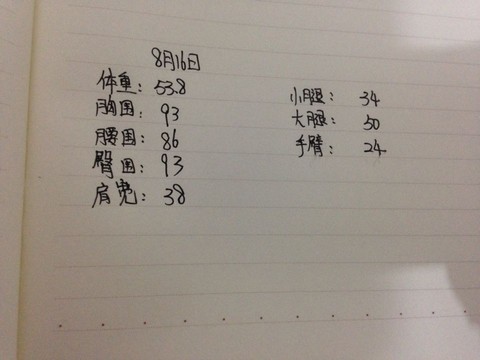 8月16日
体重：53.8
胸围：93
腰围：86
臀围：93
肩宽：38
小腿：34
大腿：50
手臂：24